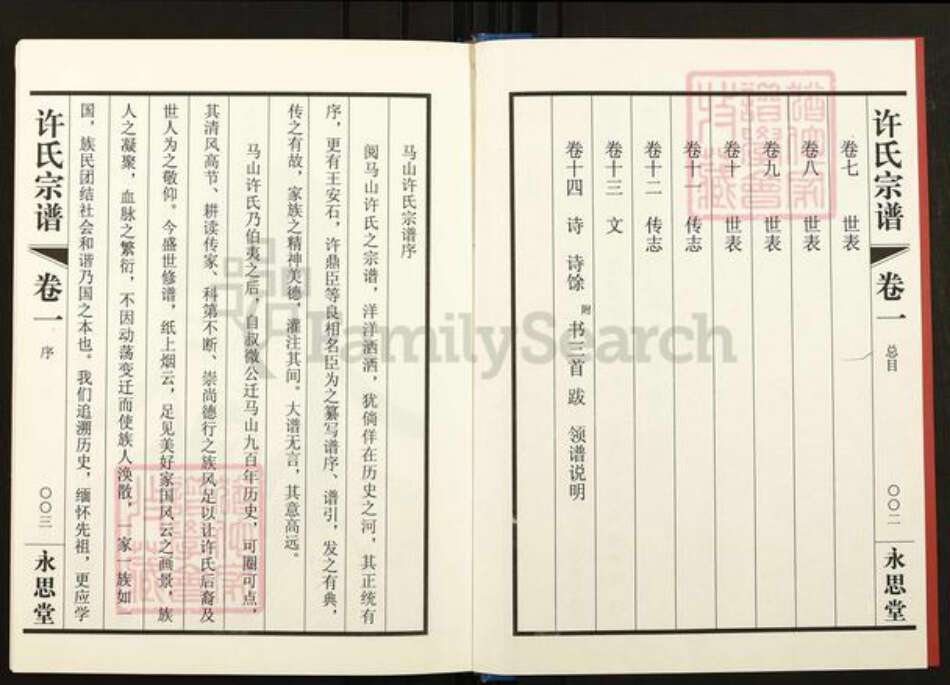 许氏宗谱
卷一
总目
〇〇二
永思堂
卷七 世表
卷八 世表
卷九 世表
卷十 世表
卷十一 传志
卷十二 传志
卷十三 文
卷十四 诗 诗馀 附书三首 跋 领谱说明
马山许氏宗谱序
阅马山许氏之宗谱，洋洋洒洒，犹倘佯在历史之河，其正统有
序，更有王安石，许鼎臣等良相名臣为之纂写谱序、谱引，发之有典，
传之有故，家族之精神美德，灌注其间。大谱无言，其意高远。
马山许氏乃伯夷之后，自叔微公迁马山九百年历史，可圈可点，
其清风高节、耕读传家、科第不断、崇尚德行之族风足以让许氏后裔及
世人为之敬仰。今盛世修谱，纸上烟云，足见美好家国风云之画景，族
人之凝聚，血脉之繁衍，不因动荡变迁而使族人涣散，一家一族如一
国，族民团结社会和谐乃国之本也。我们追溯历史，缅怀先祖，更应学
许氏宗谱
卷一
序
〇〇三
永思堂
FamilySearch